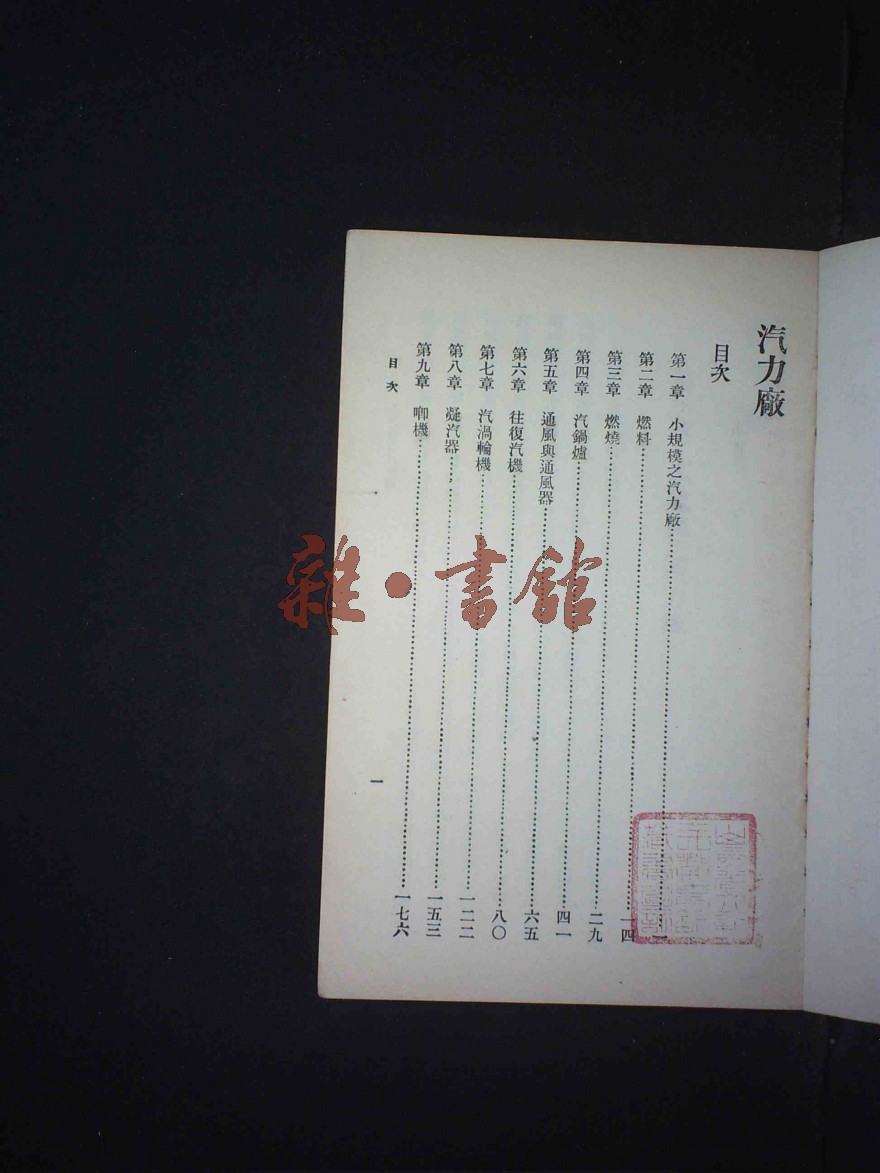 汽力廠
目次
第一章 小規模之汽力廠……一
第二章 燃料……一四
第三章 燃燒……二九
第四章 汽鍋爐……四一
第五章 通風與通風器……六五
第六章 往復汽機……八〇
第七章 汽渦輪機……一二二
第八章 凝汽器……一五三
第九章 唧機……一七六
目次
一
雜·書館